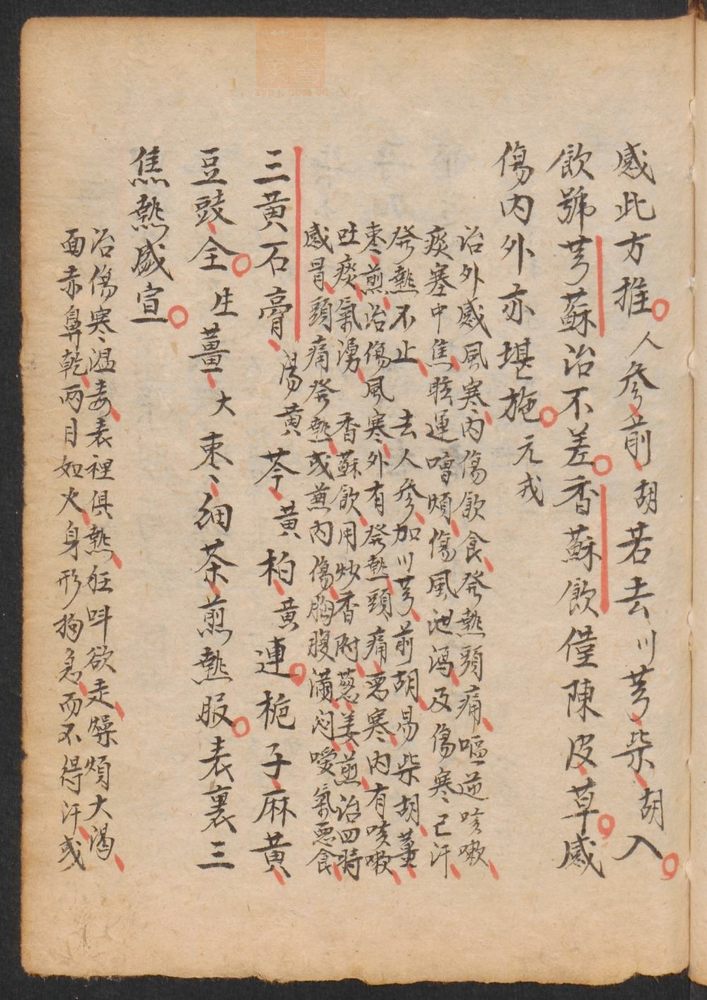 感此方推人參前胡若去川芎柴胡入
飲號芎蘇治不差香蘇飲僅陳皮草感
傷内外亦堪施元戎
治外感風寒内傷飲食發熱頭痛嘔逆咳嗽
痰塞中焦眩運嘈煩傷風泄瀉及傷寒已汗
發熱不止 去人參加川芎前胡易柴胡薑
棗煎治傷風寒外有發熱頭痛惡寒内有咳嗽
吐痰氣湧 香蘇飲用炒香附葱姜煎治四時
感冒頭痛發熱或兼内傷胸膜滿悶噯氣惡食
三黄石膏湯黄芩黄柏黄連梔子麻黄
豆豉全生薑大棗細茶煎熱服表裏三
焦熱盛宣
治傷寒温毒表裡俱熱狂呌欲走燥煩大渴
面赤鼻乾两目如火身形拘急而不得汗或